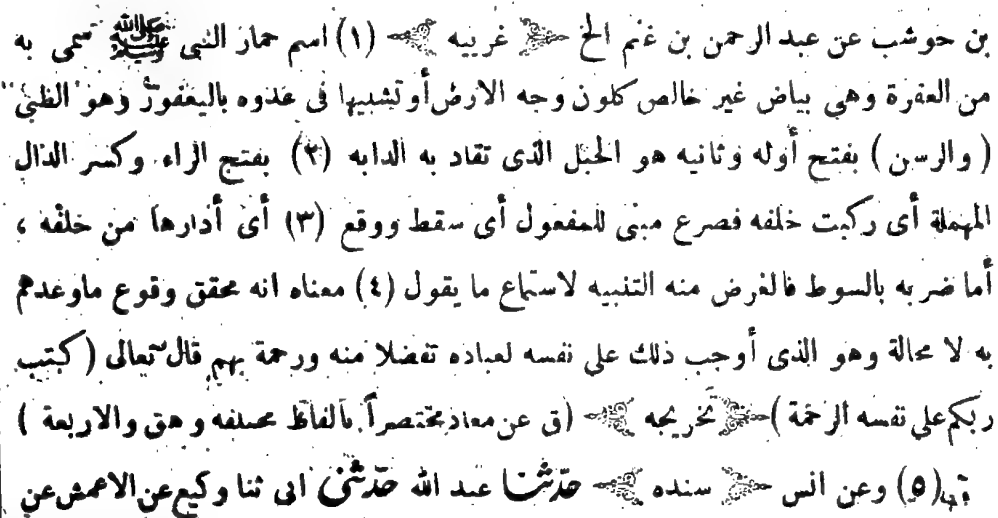 بن حوشب عن عبد الرحمن بن غنم الخ غريبه (١) اسم حمار النبي ﷺ سمى به
من العفرة وهى بياض غير خالص كلون وجه الارض أو تشبيها فى عدوه باليعفور وهو الظبى
(والرسن) بفتح أوله وثانيه هو الحبل الذى تقاد به الدابه (٢) بفتح الراء وكسر الدال
المهملة أى ركبت خلفه فصرع مبنى للمفعول أى سقط ووقع (٣) أى أدارها من خلفه ،
أما ضربه بالسوط فالغرض منه التنبيه لاستماع ما يقول (٤) معناه انه محقق وقوع ماوعدهم
به لا محالة وهو الذى أوجب ذلك على نفسه لعباده تفضلا منه ورحمة بهم قال تعالى (كتب
ربكم على نفسه الرحمة) تخريجه (ق عن معاذ مختصراً بألفاظ مختلفه و هق والاربعة)
(٥) وعن انس سنده حدثنا عبد الله حدثنى ابى ثنا وكيع عن الاعمش عن